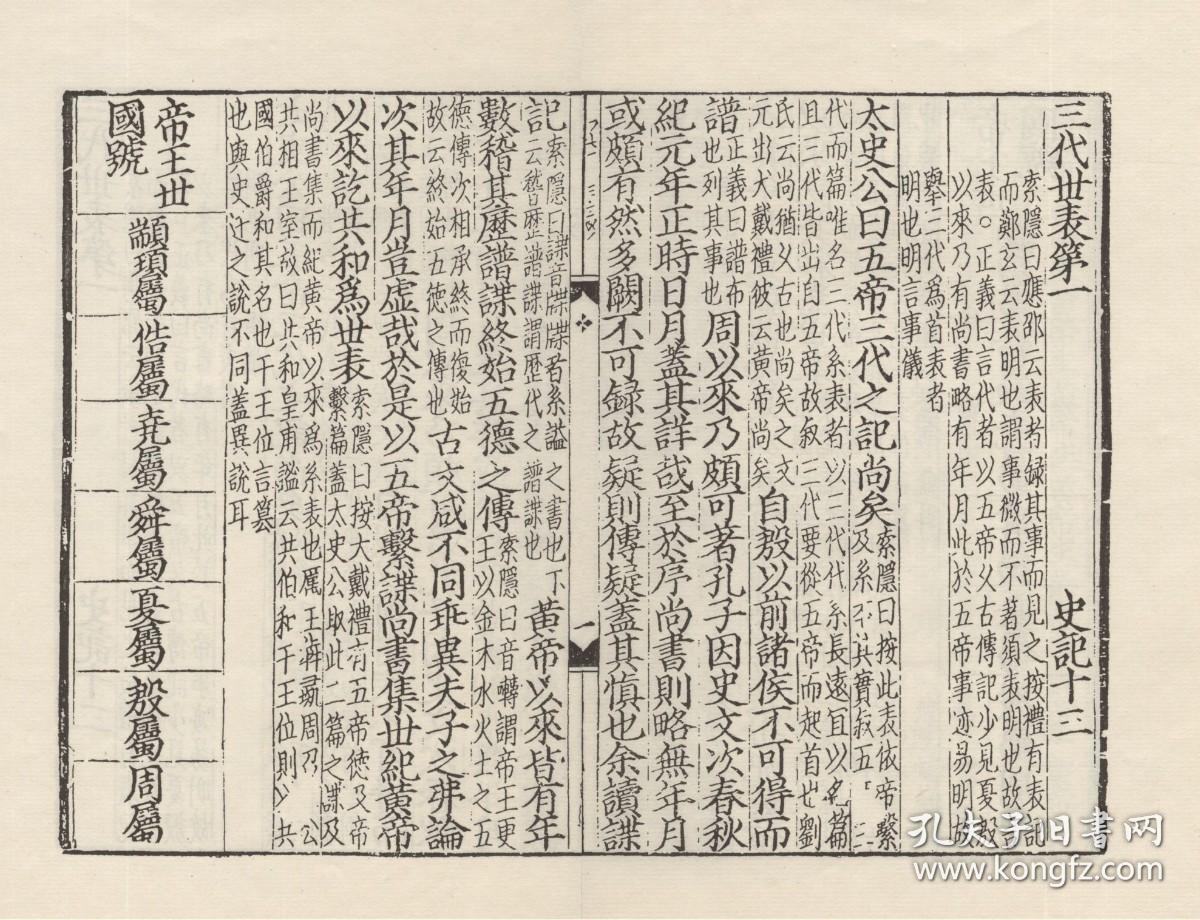 三代世表第一　史記十三
索隱曰應邵云表者録其事而見之按禮有表記
而鄭玄云表明也謂事微而不著須表明也故言
表○正義曰言代者以五帝久古傳記少見夏殷
以來乃有尚書略有年月比於五帝事迹易明故
舉三代爲首表者
明也明言事儀
太史公曰五帝三代之記尚矣索隱曰按此表依帝繫
及系其實叙五三
代而篇唯名三代系表者以三代代系長遠宜以名篇
且三代皆出自五帝故叙三代要從五帝而起首也劉
氏云尚猶久古也尚矣之文
元出大戴禮彼云黄帝尚矣自殷以前諸侯不可得而
譜正義曰譜布
也列其事也周以來乃頗可著孔子因史文次春秋
紀元年正時日月蓋其詳哉至於序尚書則略無年月
或頗有然多闕不可録故疑則傳疑蓋其慎也余讀諜
一
記索隱曰諜音牒牒者系謚之書也下
云稽歴譜諜謂歴代之譜諜也黄帝以來皆有年
數稽其歴譜諜終始五德之傳索隱曰音囀謂帝王更
王以金木水火土之五
德傳次相承終而復始
故云終始五德之傳也古文咸不同乖異夫子之弗論
次其年月豈虚哉於是以五帝繫諜尚書集世紀黄帝
以來訖共和爲世表索隱曰按大戴禮有五帝德及帝
繫篇蓋太史公取此二篇之諜及
尚書集而紀黄帝以來爲系表也厲王奔彘周召公
共相王室故曰共和皇甫謐云共伯和干王位則以共
國伯爵和其名也干王位言篡
也與史迁之說不同蓋異說耳
帝王世
國號
顓頊屬
俈屬
堯屬
舜屬
夏屬
殷屬
周屬
孔夫子旧書网
www.kongfz.com